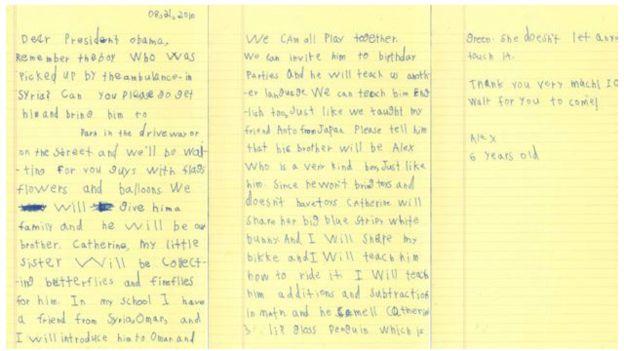 08,21,2010
Dear President obama,
Remember the boy who was
picked up by the ambulance in
Syria? Can you please go get
him and bring him to
Park in the driveway or
on the street and we'll be wai-
ting for you guys with flags
flowers and balloons. We
will give him a
family and he will be our
brother. Catherine, my little
sister will be collect-
ing betterflies and fireflies
for him. In my school I have
a friend from Syria, Omar, and
I will introduce him to Omar and
We can all play together.
We can invite him to birthday
parties and he will teach us anoth-
er language. We can teach him eng-
lish too, Just like we taught my
friend Aoto from Japan. Please tell him
that his brother will be Alex
Who is a very kind boy, Just like
him. Since he won't bring toys and
doesn't have toys Catherine will
share her big blue stripy white
bunny. And I will share my
bikke and I will teach him
how to ride it. I will teach
him additions and subtraction
in math and he smell Catherine
's lip gloss penguin which is
green. She doesn't let any
touch it.
Thank you very mach! I c
wait for you to come!
Alex
6 years old